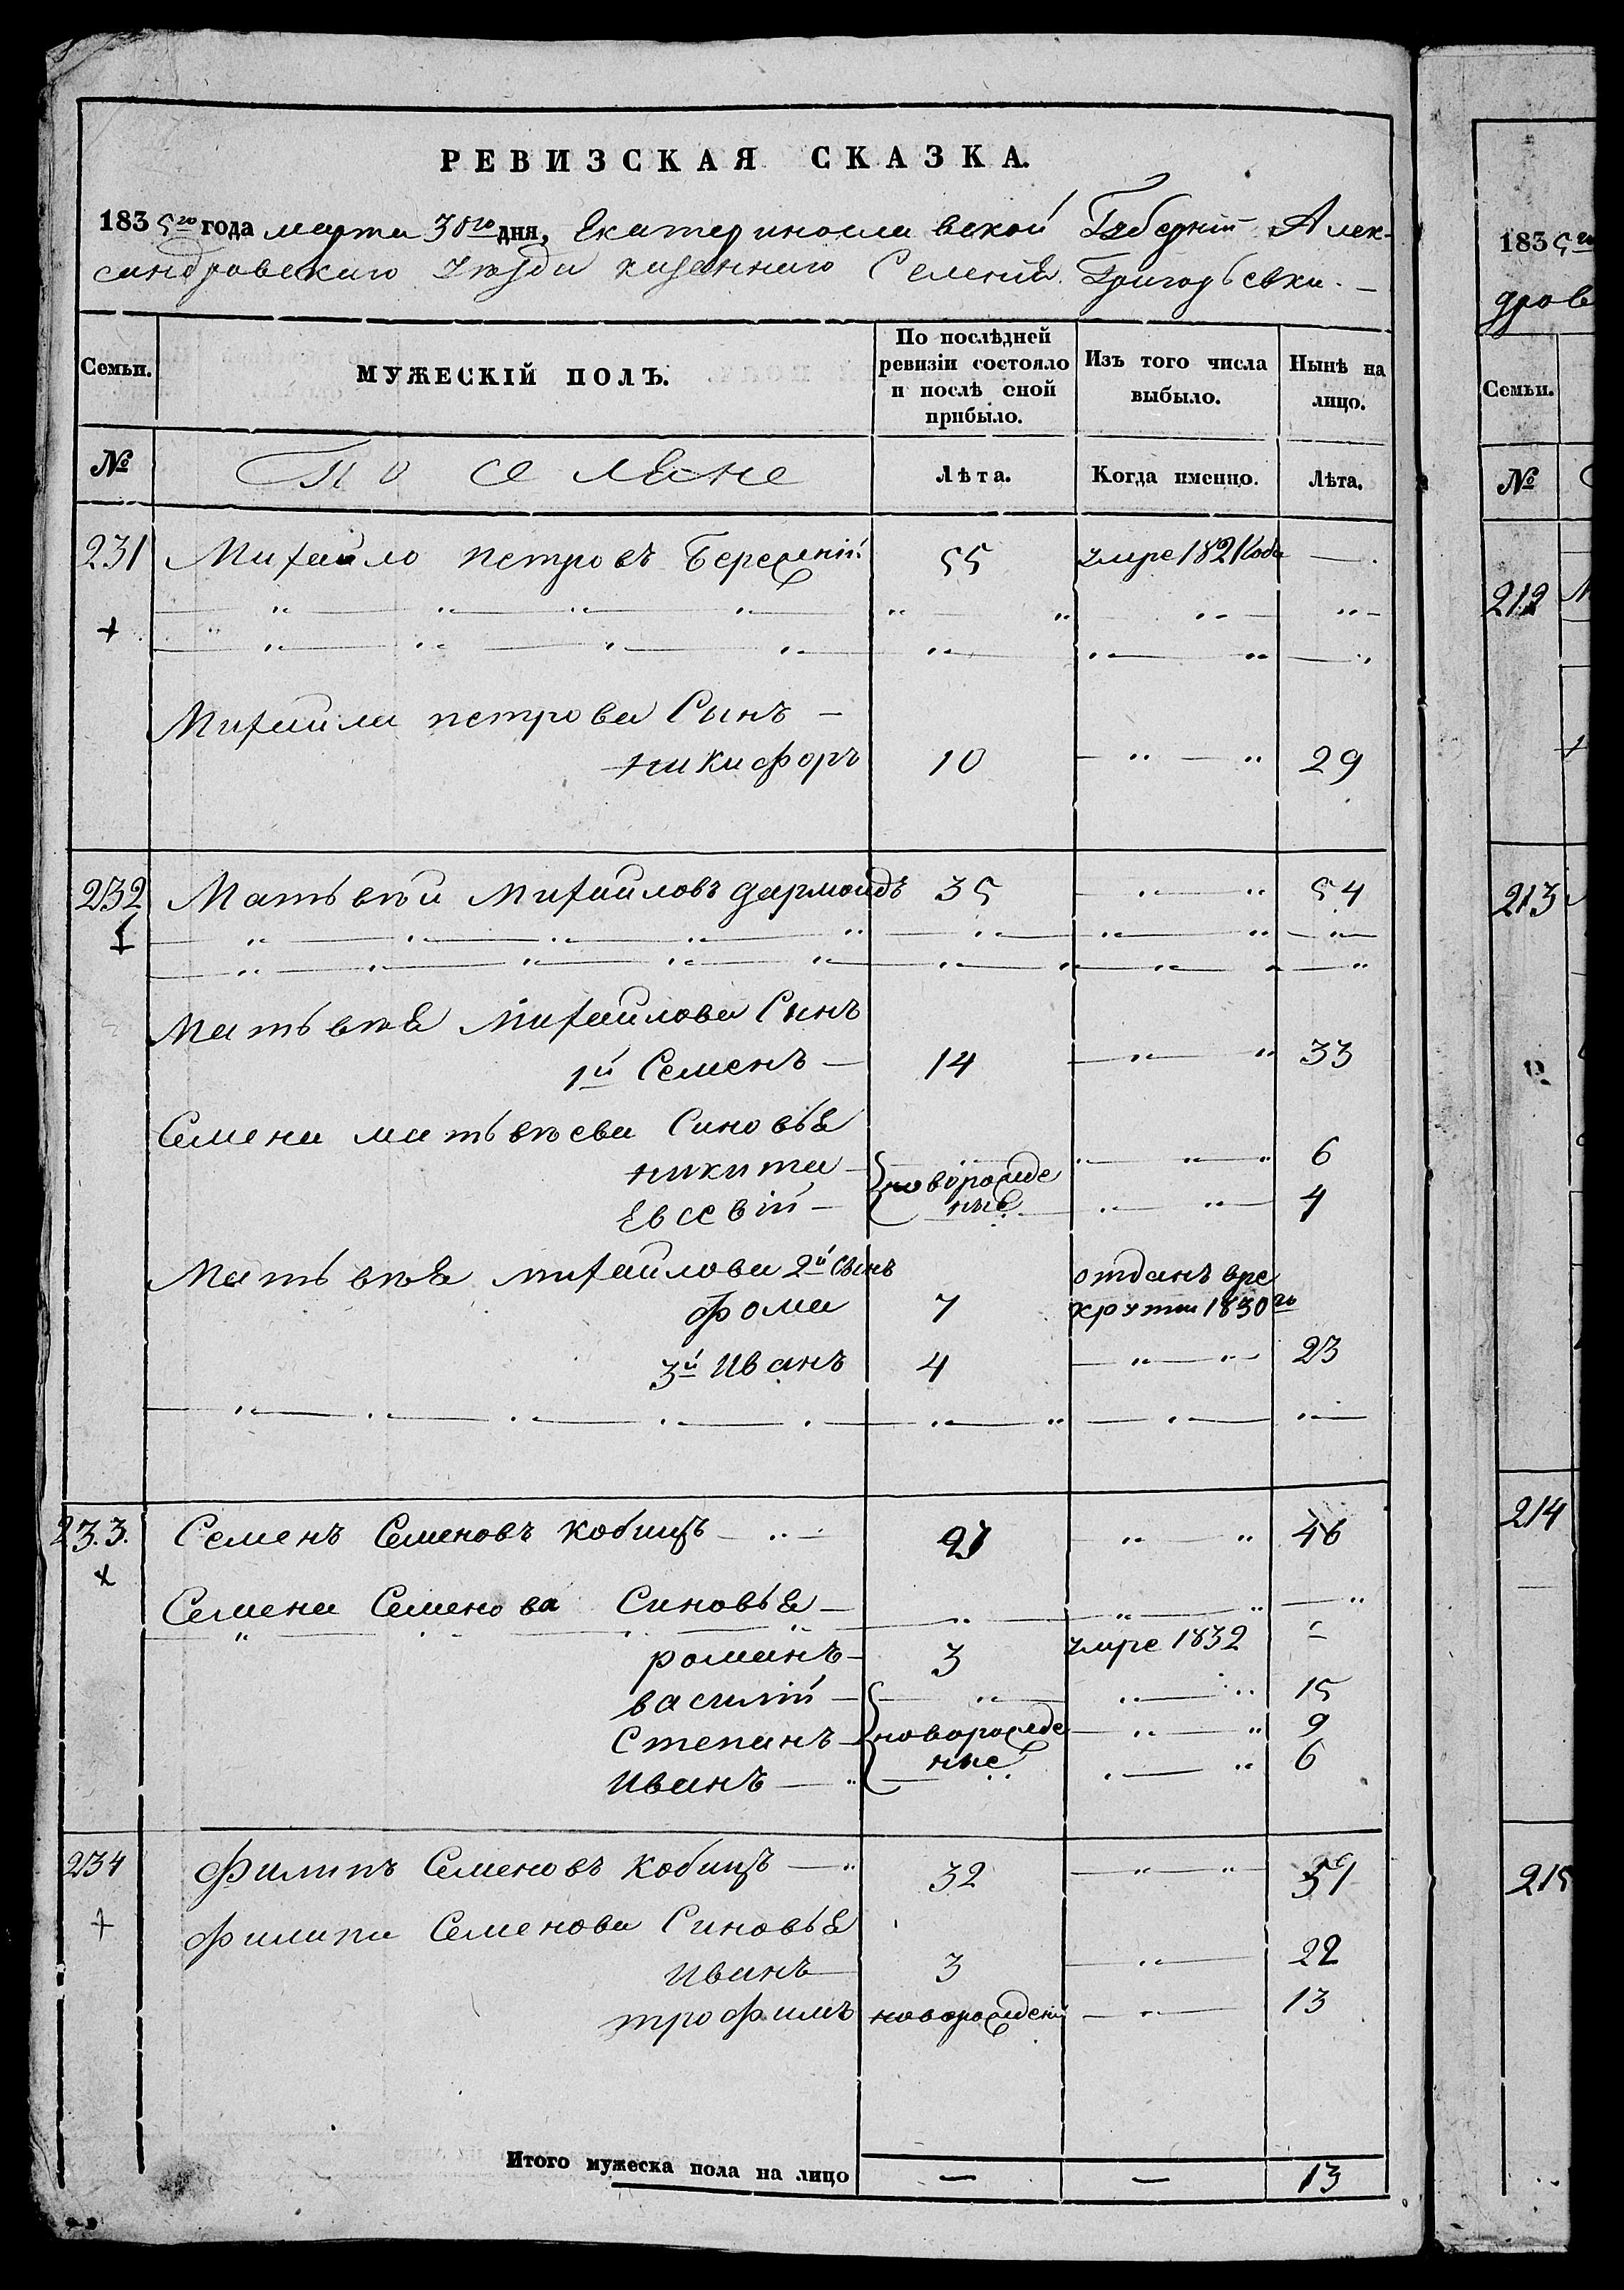 РЕВИЗСКАЯ СКАЗКА.
1835го года марта 30го дня, Екатериносла вской Губерніи Алек-
сандровскаго Уѣзда казеннаго Селенія Григорьевки.
Семьи.
МУЖЕСКІЙ ПОЛЪ.
По послѣдней ревизіи состояло и послѣ оной прибыло.
Изъ того числа выбыло.
Нынѣ на лицо.
№
Поселяне
Лѣта.
Когда именно.
Лѣта.
231 Михайло Петровъ 55 умре 1821 года —
Михайла петрова Сынъ —
никифоръ 10 29
232 Матьвѣй Михайловъ дармоидъ 35 54
Матьвѣя Михайлова Сынъ
1й Семенъ — 14 33
Семена матьвѣева Синовья
никита — 6
новорожде
ные
Евсевій — 4
Матьвѣя михайлова 2й сынъ отданъ вре
фома 7 круты 1830го
3й Иванъ 4 23
233. Семенъ Семеновъ кобицъ 27 46
Семена Семенова Синовья —
романъ — 3 умре 1832
василій — 15
Степанъ — новорожде 9
ные
Иванъ — 6
234 Филипъ Семеновъ кобицъ — 32 51
филипа Семенова Синовья
Иванъ 3 22
трофимъ новорожденій 13
Итого мужеска пола на лицо — — 13
1835го
дров
Семьи.
№
212
213
214
215